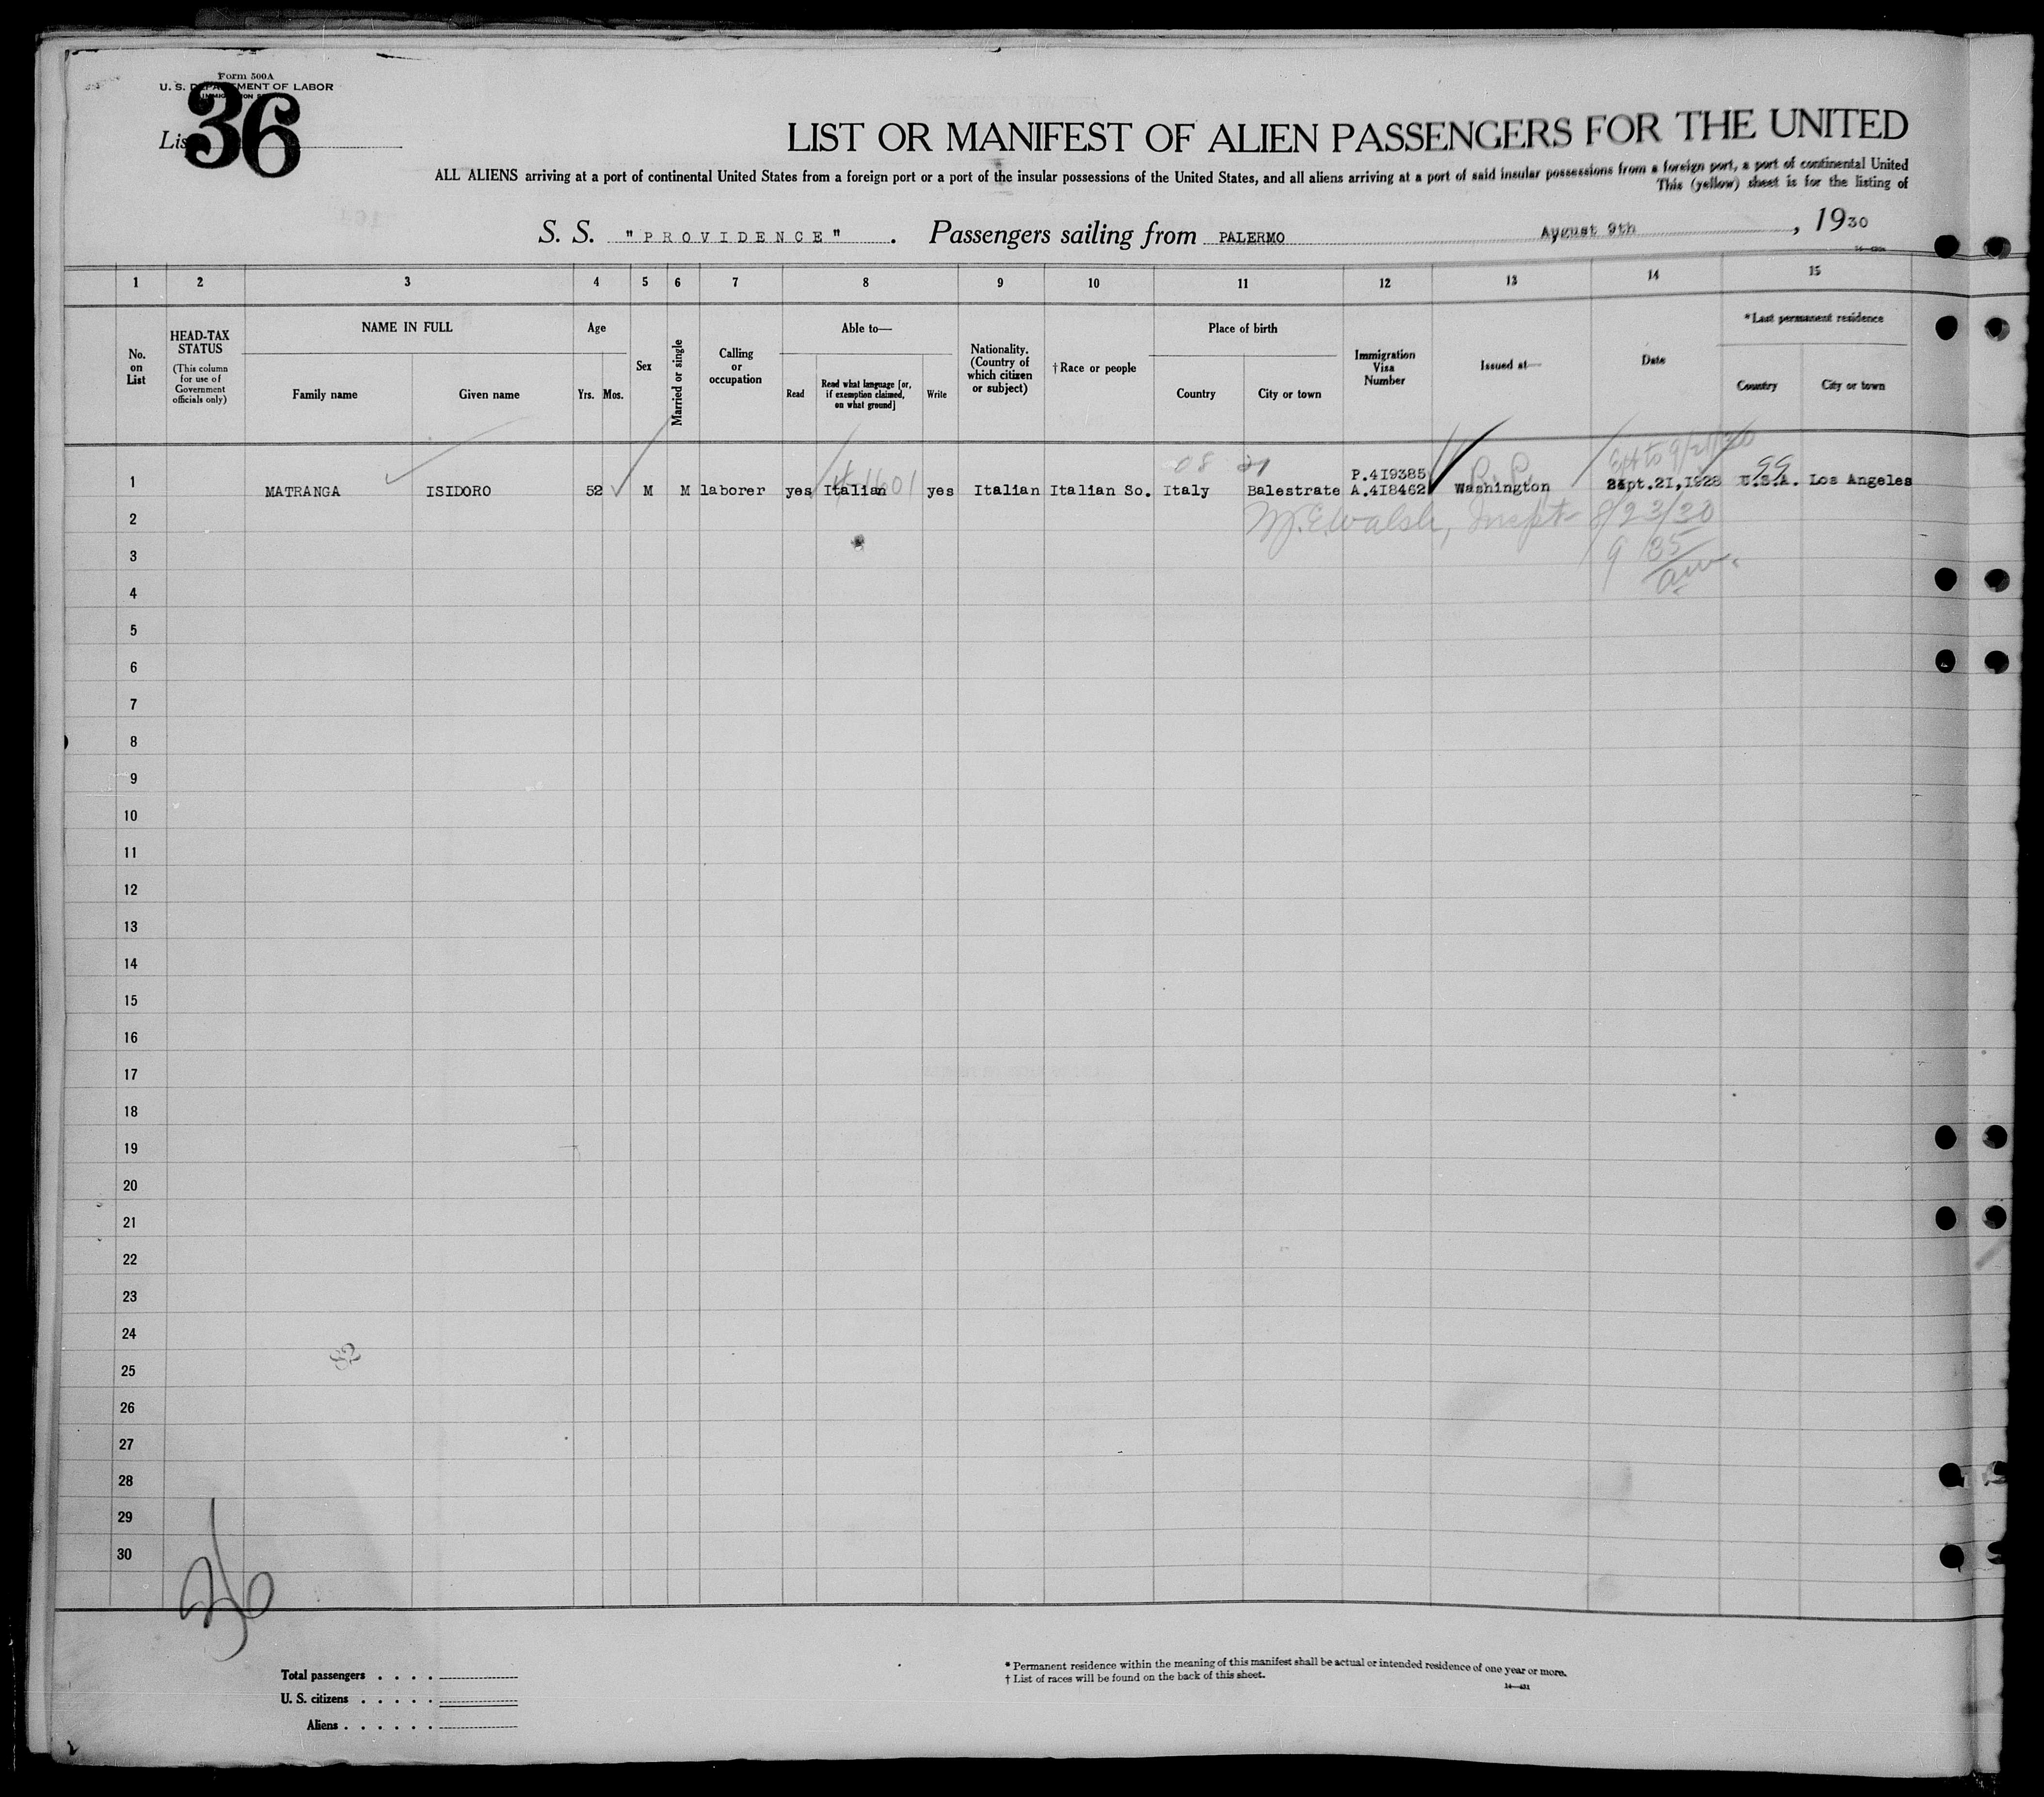 Form 500A
U. S. DEPARTMENT OF LABOR
36
LIST OR MANIFEST OF ALIEN PASSENGERS FOR THE UNITED
ALL ALIENS arriving at a port of continental United States from a foreign port or a port of the insular possessions of the United States, and all aliens arriving at a port of said insular possessions from a foreign port, a port of continental United
This (yellow) sheet is for the listing of
S. S. "PROVIDENCE". Passengers sailing from PALERMO August 9th, 1930
1 2 3 4 5 6 7 8 9 10 11 12 13 14 15
No. on List
HEAD-TAX STATUS
(This column for use of Government officials only)
NAME IN FULL
Family name Given name
Age
Yrs. Mos.
Sex
Married or single
Calling or occupation
Able to—
Read
Read what language [or, if exemption claimed, on what ground]
Write
Nationality. (Country of which citizen or subject)
†Race or people
Place of birth
Country City or town
Immigration Visa Number
Issued at—
Date
*Last permanent residence
Country City or town
Ext to 9/21/30
P.419385
1 MATRANGA ISIDORO 52 M M laborer yes Italian yes Italian Italian So. Italy Balestrate A.418462 Washington Sept.21,1928 U.S.A. Los Angeles
2 M.E.Walsh, Inspt 8/23/30
3 9 35
am.
4
5
6
7
8
9
10
11
12
13
14
15
16
17
18
19
20
21
22
23
24
25
26
27
28
29
30
Total passengers . . . .
U. S. citizens . . . . .
Aliens . . . . . .
* Permanent residence within the meaning of this manifest shall be actual or intended residence of one year or more.
† List of races will be found on the back of this sheet.
14—431